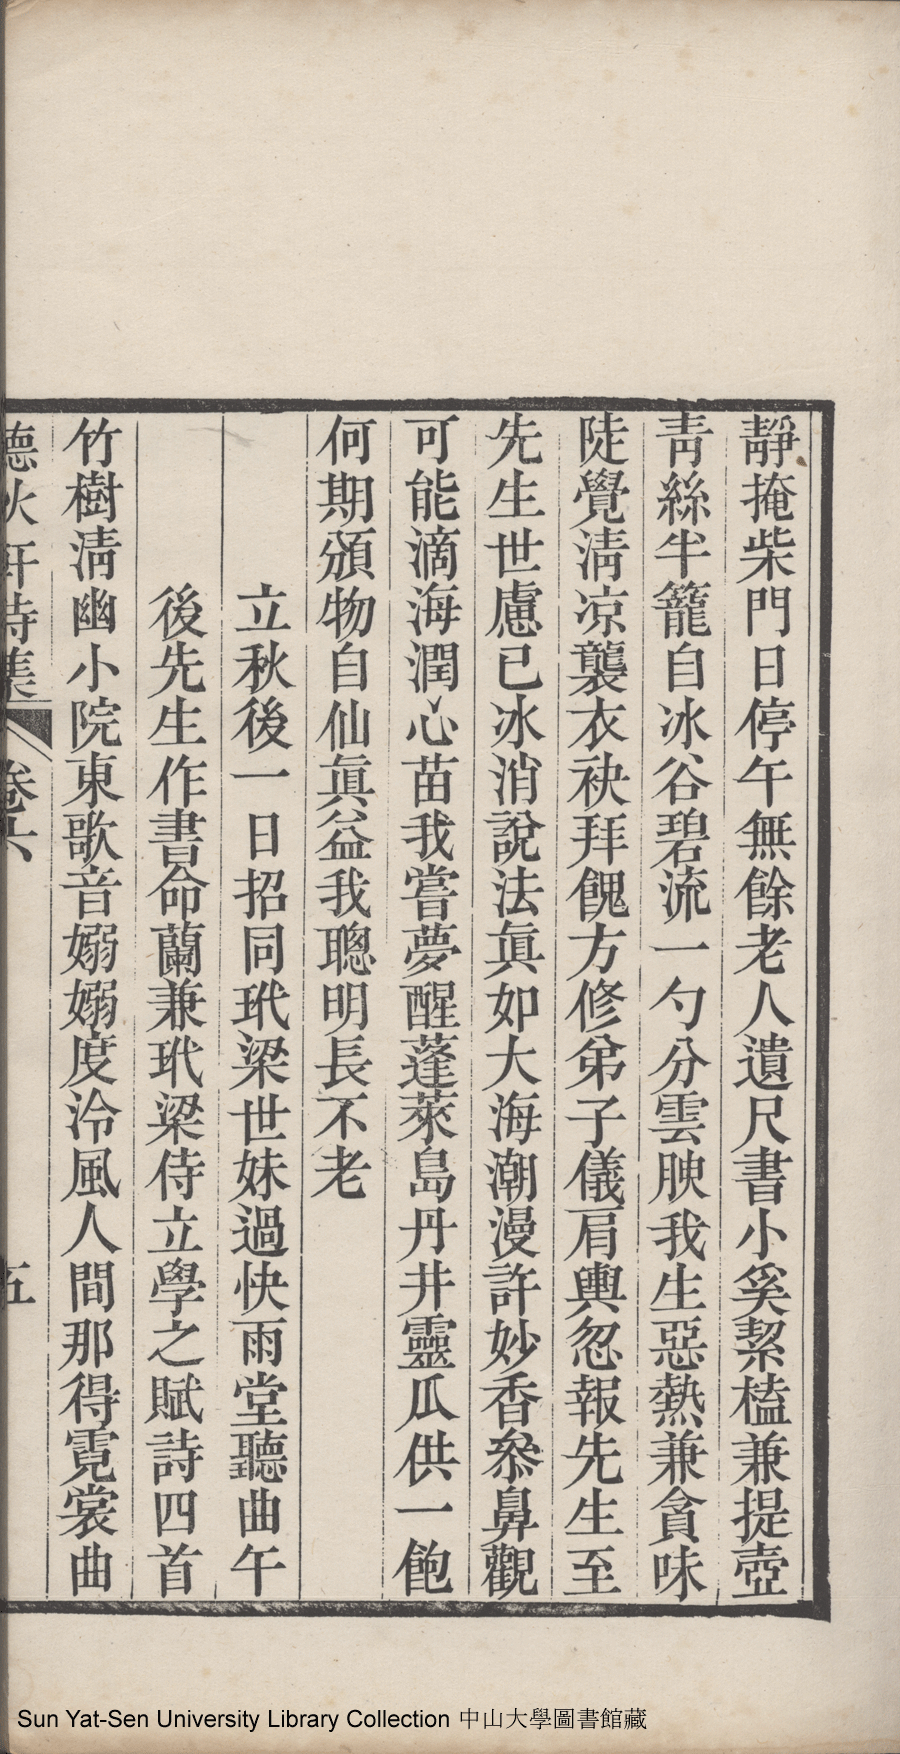 靜掩柴門日停午無餘老人遺尺書小奚挈榼兼提壺
靑絲半籠自冰谷碧流一勺分雲腴我生惡熱兼貪味
陡覺淸凉襲衣袂拜餽方修弟子儀肩輿忽報先生至
先生世慮已冰消說法眞如大海潮漫許妙香叅鼻觀
可能滴海潤心苗我嘗夢醒蓬萊島丹井靈瓜供一飽
何期頒物自仙眞益我聰明長不老
立秋後一日招同玳梁世妹過快雨堂聽曲午
後先生作書命蘭兼玳梁侍立學之賦詩四首
竹樹淸幽小院東歌音嫋嫋度泠風人間那得霓裳曲
德火軒詩集 卷六 五
Sun Yat-Sen University Library Collection 中山大學圖書館藏